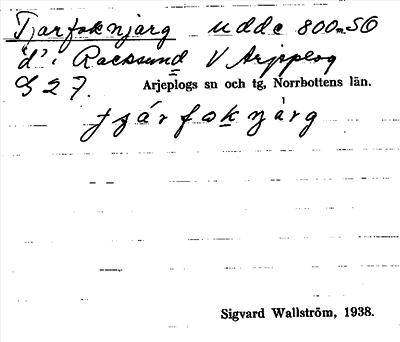 Tjarfoknjarg udde 800 m SO
"d" i Racksund V Arjeplog
G 27. Arjeplogs sn och tg, Norrbottens län.
tjárfok njàrg
Sigvard Wallström, 1938.